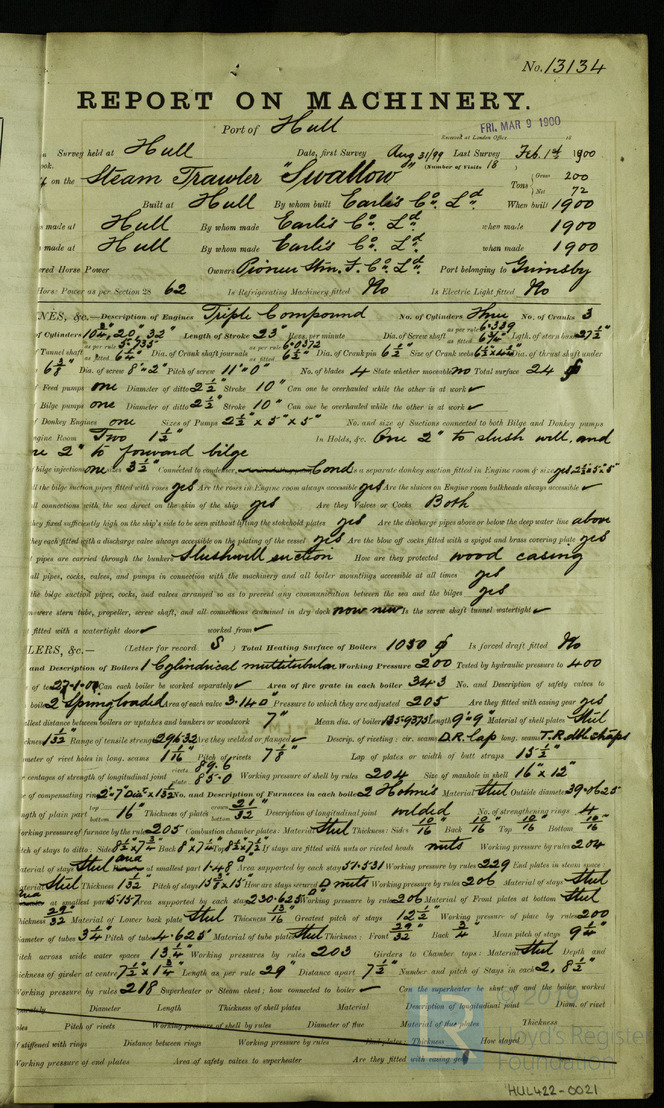 No. 13134
REPORT ON MACHINERY.
Port of Hull
FRI, MAR 9 1900
Received at London Office 18
Survey held at Hull Date, first Survey Aug 31/99 Last Survey Feb. 1st 1900
(Number of Visits 18)
on the Steam Trawler "Swallow" Tons Gross 200 Net 72
Built at Hull By whom built Earle's Co. Ld. When built 1900
made at Hull By whom made Earle's Co. Ld. when made 1900
made at Hull By whom made Earle's Co. Ld. when made 1900
ered Horse Power Owners Pioneer Stm. F. Co. Ld. Port belonging to Grimsby
Horse Power as per Section 28 62 Is Refrigerating Machinery fitted No Is Electric Light fitted No
NES, &c.— Description of Engines Triple Compound No. of Cylinders Three No. of Cranks 3
of Cylinders 10¾, 20, 32" Length of Stroke 23" Revs. per minute Dia. of Screw shaft as per rule 6.339 as fitted Lgth. of stern bush 27½"
Tunnel shaft as per rule 5.735 as fitted 6¼" Dia. of Crank shaft journals as per rule 6.0372 as fitted Dia. of Crank pin 6½" Size of Crank webs Dia. of thrust shaft under
6⅜" Dia. of screw 8'-2" Pitch of screw 11'-0" No. of blades 4 State whether moveable No Total surface 24
Feed pumps one Diameter of ditto 2½" Stroke 10" Can one be overhauled while the other is at work ✓
Bilge pumps one Diameter of ditto 2½" Stroke 10" Can one be overhauled while the other is at work ✓
Donkey Engines one Sizes of Pumps 2½" x 5" x 5" No. and size of Suctions connected to both Bilge and Donkey pumps
ngine Room Two 1½" In Holds, &c. One 2" to slush well, and
ne 2" to forward bilge
bilge injections one sizes 3½" Connected to condenser, Cond Is a separate donkey suction fitted in Engine room & size yes 2½"x5"x5"
ll the bilge suction pipes fitted with roses yes Are the roses in Engine room always accessible yes Are the sluices on Engine room bulkheads always accessible ✓
ll connections with the sea direct on the skin of the ship yes Are they Valves or Cocks Both
hey fixed sufficiently high on the ship's side to be seen without lifting the stokehold plates yes Are the discharge pipes above or below the deep water line above
hey each fitted with a discharge valve always accessible on the plating of the vessel yes Are the blow off cocks fitted with a spigot and brass covering plate yes
pipes are carried through the bunkers Slushwell suction How are they protected wood casing
all pipes, cocks, valves, and pumps in connection with the machinery and all boiler mountings accessible at all times yes
the bilge suction pipes, cocks, and valves arranged so as to prevent any communication between the sea and the bilges yes
were stern tube, propeller, screw shaft, and all connections examined in dry dock now new Is the screw shaft tunnel watertight ✓
fitted with a watertight door ✓ worked from ✓
LERS, &c.— (Letter for record S) Total Heating Surface of Boilers 1050 Is forced draft fitted No
and Description of Boilers 1 Cylindrical multitubular Working Pressure 200 Tested by hydraulic pressure to 400
of test 27-1-00 Can each boiler be worked separately ✓ Area of fire grate in each boiler 34.3 No. and Description of safety valves to
boiler 2 Spring loaded Area of each valve 3.14 Pressure to which they are adjusted 205 Are they fitted with easing gear yes
allest distance between boilers or uptakes and bunkers or woodwork 7" Mean dia. of boilers 135.9375 Length 9'-9" Material of shell plates Steel
ckness 1 5/32 Range of tensile strength 29&32 Are they welded or flanged ✓ Descrip. of riveting: cir. seams D.R. lap long. seams T.R. dbl. straps
meter of rivet holes in long. seams 1 1/16" Pitch of rivets 7⅛" Lap of plates or width of butt straps 15½"
centages of strength of longitudinal joint rivets 89.6 plate 85.0 Working pressure of shell by rules 204 Size of manhole in shell 16" x 12"
of compensating ring No. and Description of Furnaces in each boiler 2 Holmes Material Steel Outside diameter 39.0625
gth of plain part top bottom 16" Thickness of plates crown bottom 21/32" Description of longitudinal joint welded No. of strengthening rings 4
orking pressure of furnace by the rules 205 Combustion chamber plates: Material Steel Thickness: Sides 10/16 Back 10/16 Top 10/16 Bottom 10/16
tch of stays to ditto: Sides Back Top If stays are fitted with nuts or riveted heads nuts Working pressure by rules 204
aterial of stays Steel at smallest part 1.48" Area supported by each stay 57.531 Working pressure by rules 229 End plates in steam space:
aterial Steel Thickness Pitch of stays How are stays secured D nuts Working pressure by rules 206 Material of stays Steel
at smallest part 5.157 Area supported by each stay 230.625 Working pressure by rules 206 Material of Front plates at bottom Steel
hickness 29/32 Material of Lower back plate Steel Thickness Greatest pitch of stays 12½" Working pressure of plate by rules 200
iameter of tubes 3¼" Pitch of tubes 4.625" Material of tube plates Steel Thickness: Front 29/32 Back ¾" Mean pitch of stays 9¼"
itch across wide water spaces 13¼" Working pressures by rules 203 Girders to Chamber tops: Material Steel Depth and
hickness of girder at centre 7½" x 1¾" Length as per rule 29" Distance apart 7½" Number and pitch of Stays in each 2, 8½"
Working pressure by rules 218 Superheater or Steam chest; how connected to boiler ✓ Can the superheater be shut off and the boiler worked
parately Diameter Length Thickness of shell plates Material Description of longitudinal joint Diam. of rivet
oles Pitch of rivets Working pressure of shell by rules Diameter of flue Material of flue plates Thickness
f stiffened with rings Distance between rings Working pressure by rules End plates: Thickness How stayed
Working pressure of end plates Area of safety valves to superheater Are they fitted with easing gear
Lloyd's Register
Foundation
HUL422-0021